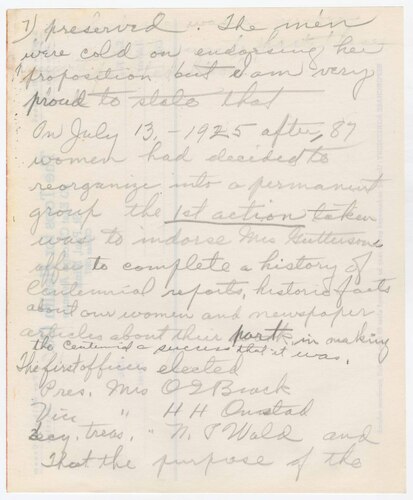 7) preserved. The men
were cold on endorsing her
proposition but I am very
proud to state that
On July 13, - 1925 after, 87
women had decided to
reorganize into a permanent
group the 1st action taken
was to indorse Mrs Guttersons
offer to complete a history of
Centennial reports, historic facts
about our women and newspaper
articles about their part in making
the Centennial a success that it was.
The first officers elected
Pres. Mrs O G Brack
Vice " H H Onstad
Secy. treas. " N. T Wald and
That the purpose of the